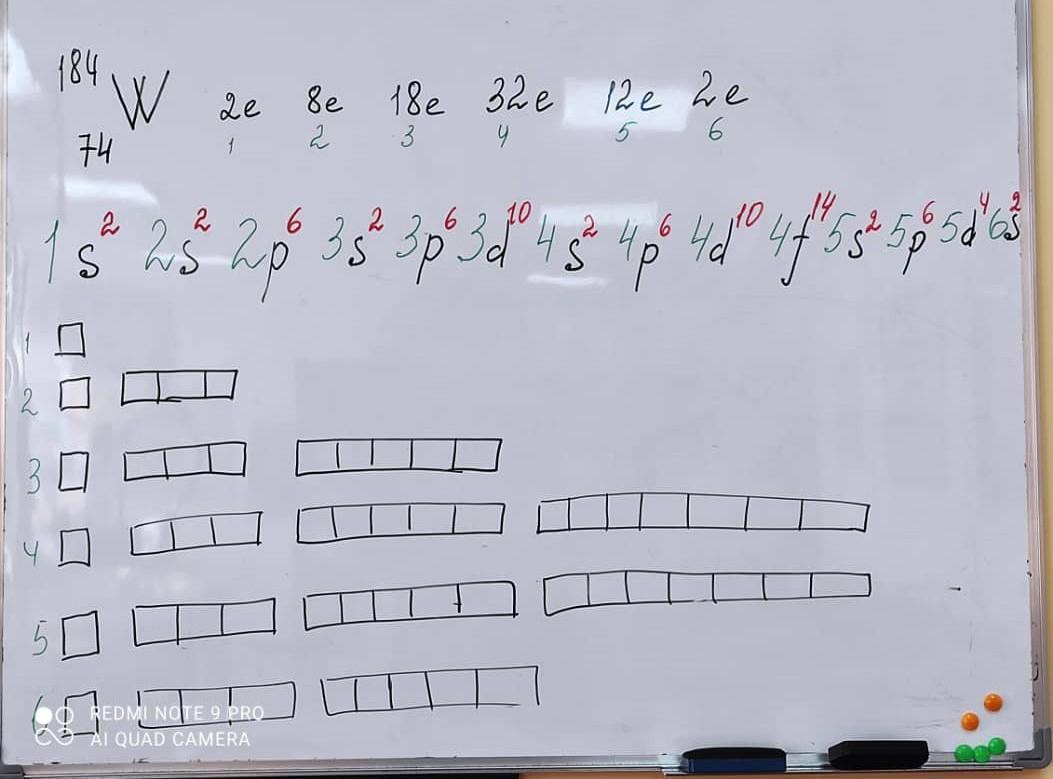 184
W 2e 8e 18e 32e 12e 2e
74 1 2 3 4 5 6
1s² 2s² 2p⁶ 3s² 3p⁶ 3d¹⁰ 4s² 4p⁶ 4d¹⁰ 4f¹⁴ 5s² 5p⁶ 5d⁴ 6s²
1
2
3
4
5
6
REDMI NOTE 9 PRO
AI QUAD CAMERA